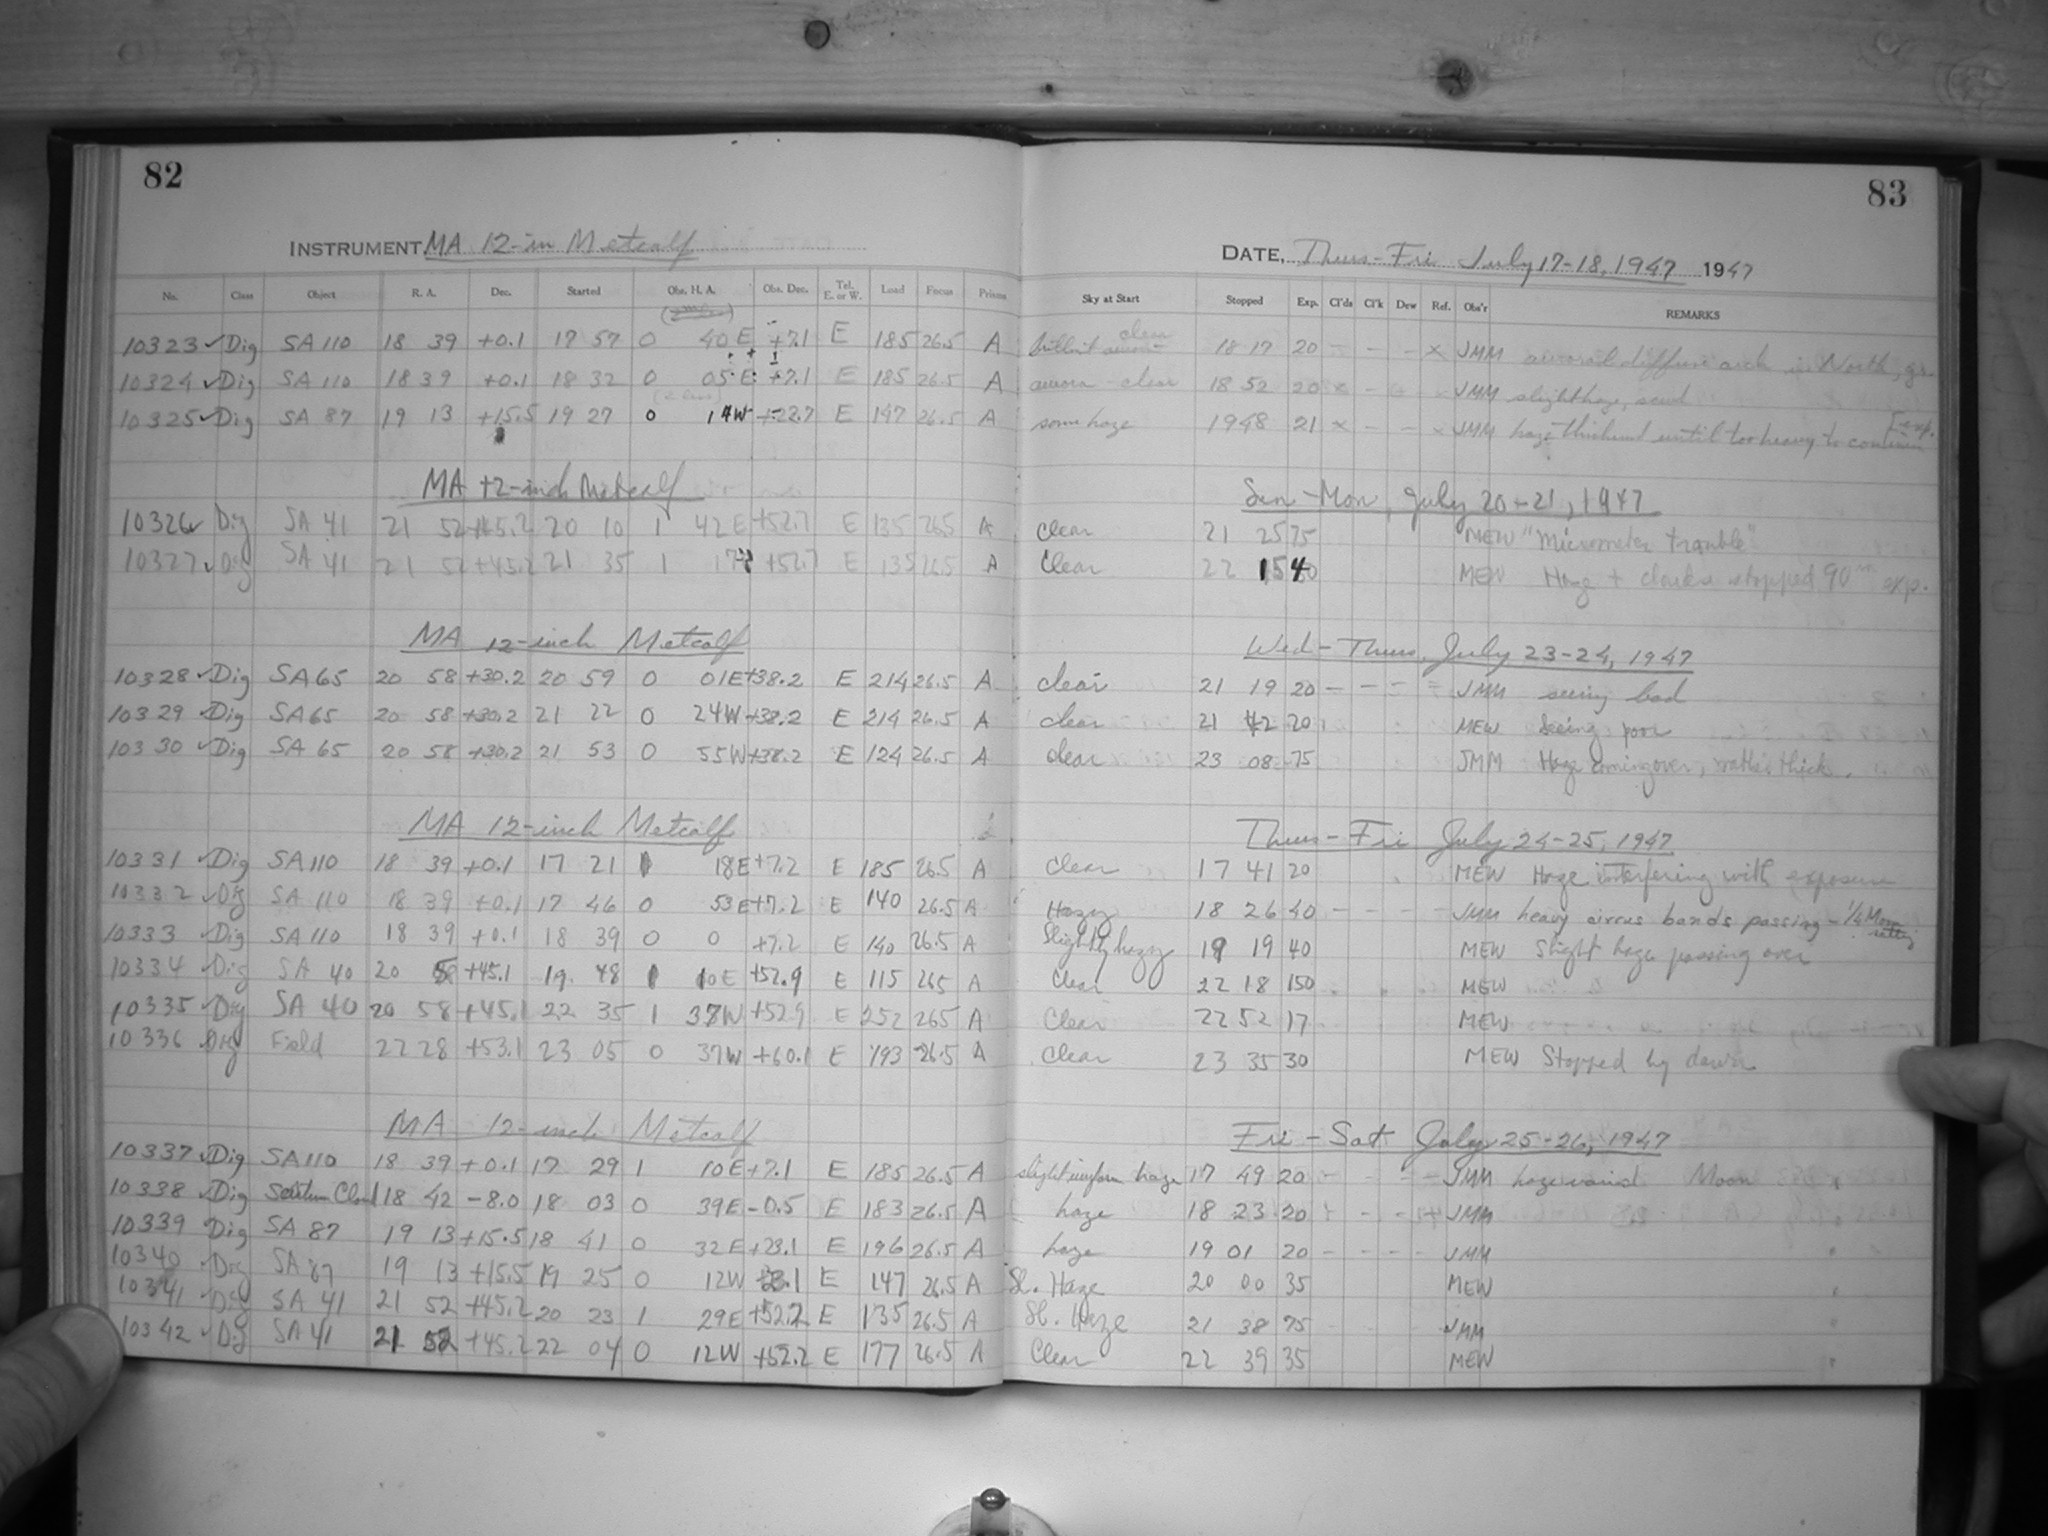 82
INSTRUMENT, MA 12-in Metcalf
No. Class Object R. A. Dec. Started Obs. H. A. Obs. Dec. Tel. E. or W. Load Focus Prisms
10323 ✓ Dig SA 110 18 39 +0.1 17 57 0 40 E +7.1 E 185 26.5 A
10324 ✓ Dig SA 110 18 39 +0.1 18 32 0 05 E +7.1 E 185 26.5 A
10325 ✓ Dig SA 87 19 13 +15.5 19 27 0 14W +22.7 E 147 26.5 A
MA 12-inch Metcalf
10326 ✓ Dig SA 41 21 52 +45.2 20 10 1 42 E +52.7 E 135 26.5 A
10327 ✓ Dig SA 41 21 52 +45.2 21 35 1 +52.7 E 135 26.5 A
MA 12-inch Metcalf
10328 ✓ Dig SA 65 20 58 +30.2 20 59 0 01E +38.2 E 214 26.5 A
10329 ✓ Dig SA 65 20 58 +30.2 21 22 0 24W +38.2 E 214 26.5 A
10330 ✓ Dig SA 65 20 58 +30.2 21 53 0 55W +38.2 E 124 26.5 A
MA 12-inch Metcalf
10331 ✓ Dig SA 110 18 39 +0.1 17 21 1 18E +7.2 E 185 26.5 A
10332 ✓ Dig SA 110 18 39 +0.1 17 46 0 53E +7.2 E 140 26.5 A
10333 ✓ Dig SA 110 18 39 +0.1 18 39 0 0 +7.2 E 140 26.5 A
10334 ✓ Dig SA 40 20 58 +45.1 19 48 1 10E +52.9 E 115 265 A
10335 ✓ Dig SA 40 20 58 +45.1 22 35 1 37W +52.9 E 252 265 A
10336 ✓ Dig Field 22 28 +53.1 23 05 0 37W +60.1 E 193 26.5 A
MA 12-inch Metcalf
10337 ✓ Dig SA110 18 39 +0.1 17 29 1 10E +7.1 E 185 26.5 A
10338 ✓ Dig Scutum Cloud 18 42 -8.0 18 03 0 39E -0.5 E 183 26.5 A
10339 ✓ Dig SA 87 19 13 +15.5 18 41 0 32E +23.1 E 196 26.5 A
10340 ✓ Dig SA 87 19 13 +15.5 19 25 0 12W +23.1 E 147 26.5 A
10341 ✓ Dig SA 41 21 52 +45.2 20 23 1 29E +52.2 E 135 26.5 A
10342 ✓ Dig SA 41 21 52 +45.2 22 04 0 12W +52.2 E 177 26.5 A
83
DATE, Thurs-Fri July 17-18, 1947 1947
Sky at Start Stopped Exp. Cl'ds Cl'k Dew Ref. Obs'r REMARKS
clear
brilliant aurora 18 17 20 - - - x JMM auroral diffuse arch in North,
aurora - clear 18 52 20 x - JMM slight haze,
some haze 19 48 21 x - - x JMM haze thickened until too heavy to continue exp.
Sun-Mon, July 20-21, 1947
clear 21 25 75 MEW "Micrometer trouble"
Clear 22 15 40 MEW Haze + clouds stopped 90m exp.
Wed-Thurs, July 23-24, 1947
clear 21 19 20 - - = = JMM seeing bad
clear 21 42 20 MEW Seeing poor
clear 23 08 75 JMM Haze coming over, rather thick.
Thurs-Fri July 24-25, 1947
Clear 17 41 20 MEW Haze interfering with exposure
Hazy 18 26 40 - - - - JMM heavy cirrus bands passing - 1/4 Moon setting
Slightly hazy 19 19 40 MEW Slight haze passing over
Clear 22 18 150 MEW
Clear 22 52 17 MEW
Clear 23 35 30 MEW Stopped by dawn
Fri-Sat July 25-26, 1947
slight uniform haze 17 49 20 - - - - JMM haze Moon
haze 18 23 20 + - - + JMM
haze 19 01 20 - - - - JMM
Sl. Haze 20 00 35 MEW
Sl. Haze 21 38 75 JMM
Clear 22 39 35 MEW